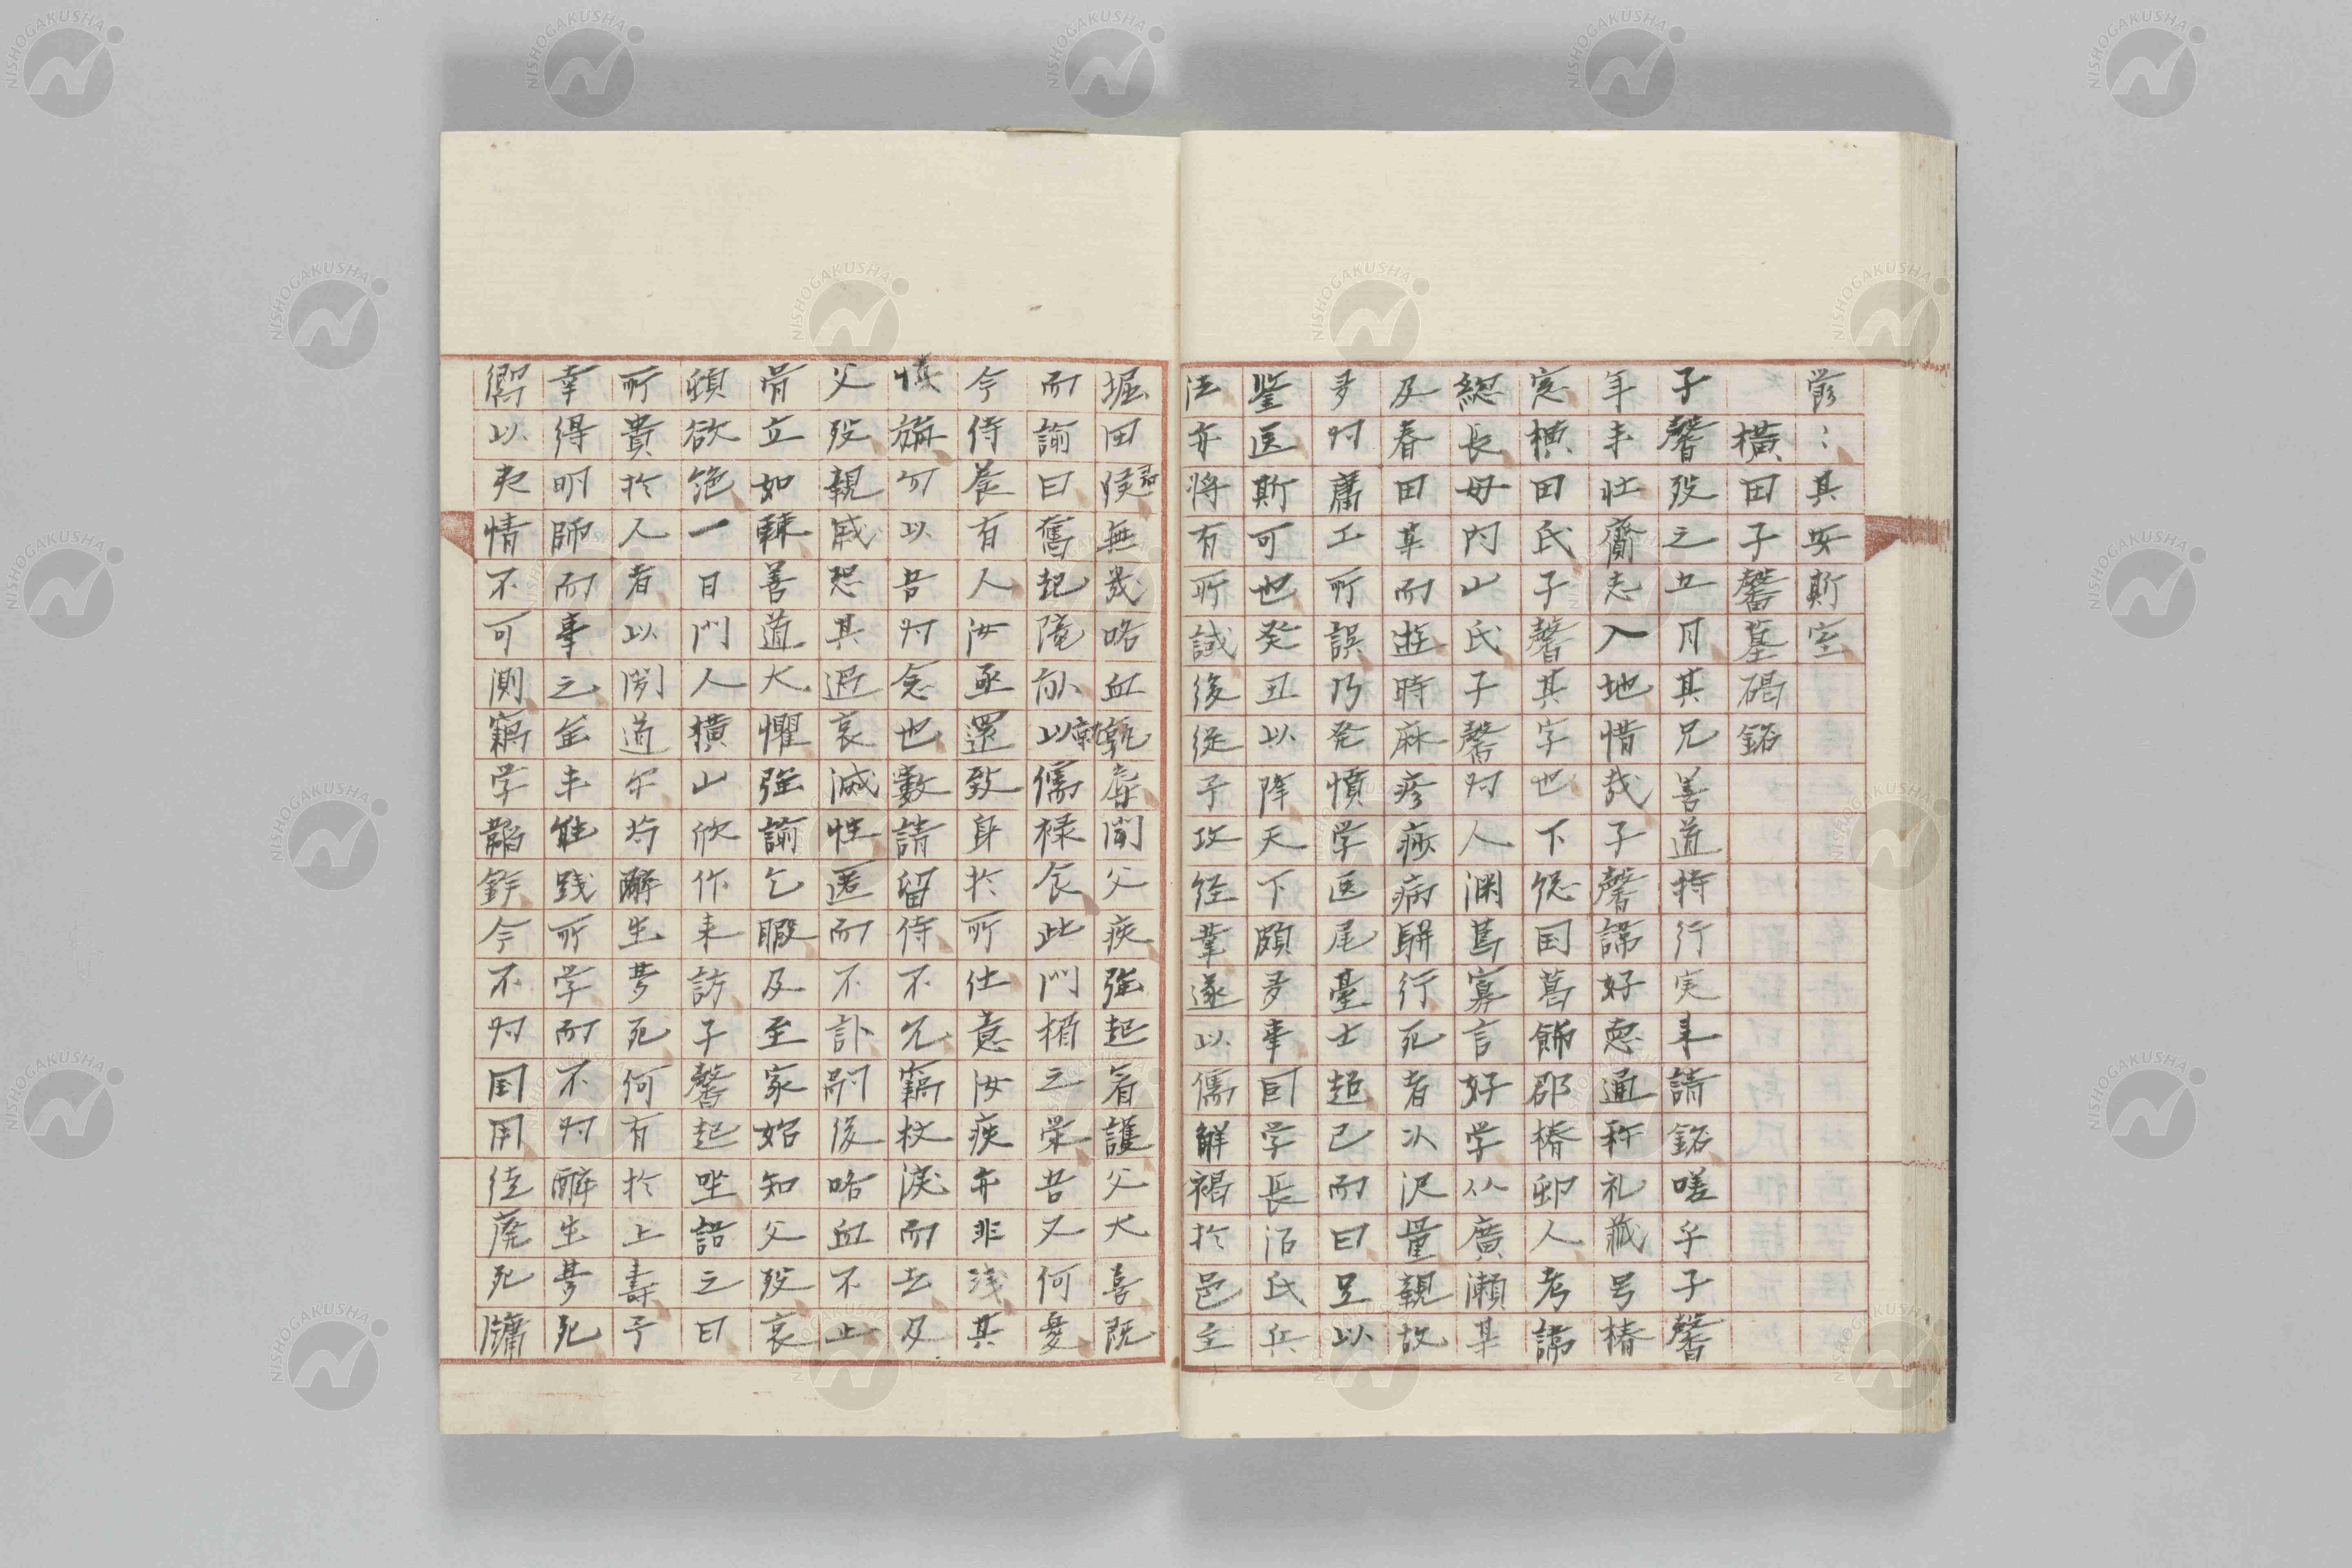 甞〻其安斯室
横田子馨墓碣銘
子馨歿之五月其兄善道持行実来請銘嗟乎子馨
年未壮齎志入地惜哉子馨諱好悳通称礼蔵号椿
窓横田氏子馨其字也下総国葛飾郡椿邨人考諱
総長母内山氏子馨为人淵篤寡言好学从廣瀬某
及春田某而遊時麻疹痧病駢行死者以沢量親故
多为庸工所誤乃発憤学医尾臺士超已而曰足以
鑒医斯可也癸丑以降天下頗多事巨学長沼氏兵
法亦将有所試後従予攻経業遂以儒觧褐於邑主
堀田侯君無幾咯血執辱聞父疾強起看護父大喜既
而諭曰舊起隴畝以業儒禄食此門楣之栄吾又何憂
今侍養有人汝亟還致身於所仕意汝疾亦非浅其
慎旃勿以吾为念也數請留侍不允竊抆淚而去及
父歿親戚恐其過哀滅性匿而不訃嗣後咯血不止
骨立如棘善道大懼強諭乞暇及至家始知父歿哀
頓欲絶一日門人横山欣作来訪子馨起坐語之曰
所貴於人者以聞道尓苟醉生夢死何有於上壽予
幸得明師而事之年未能践所学而不为醉生夢死
爾以夷情不可測竊学韜鈐今不为国用徒廃死牖